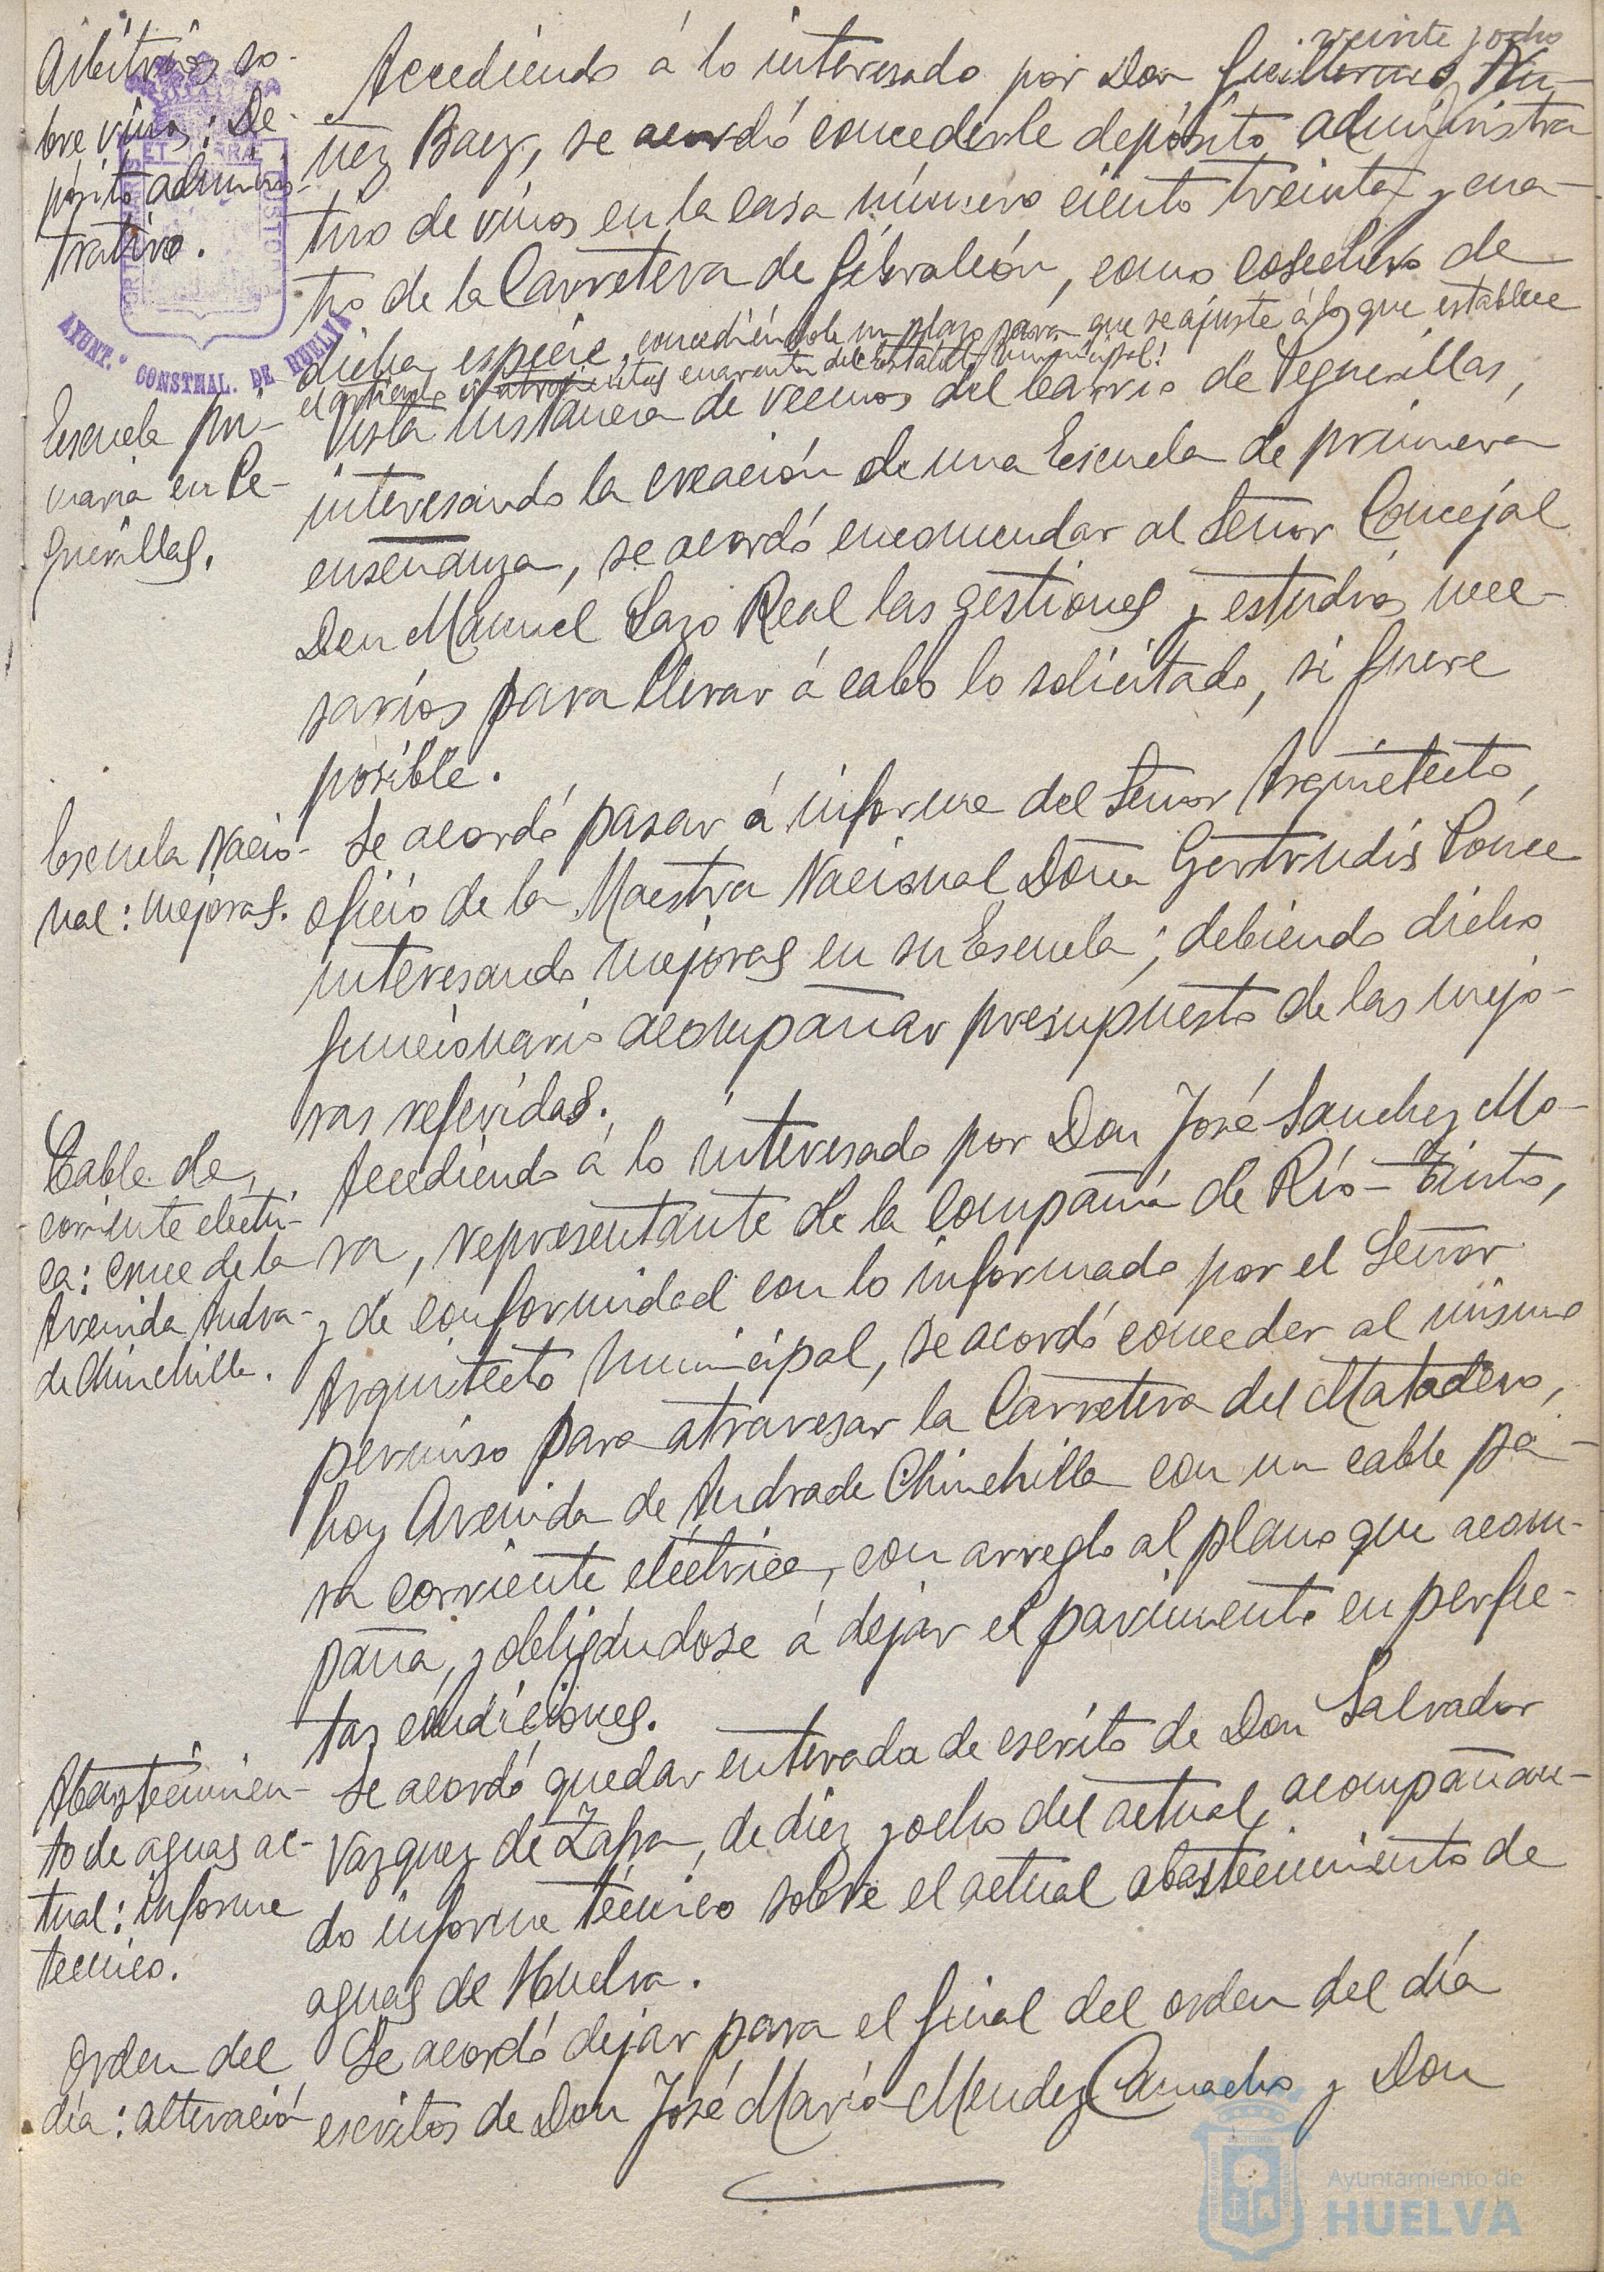 veinte y ocho
Arbitrios so-
bre vinos: De-
pósito adminis-
trativo.
Accediendo á lo interesado por Don Guillermo Nu-
ñez Baez, se acordó concederle depósito administra
tivo de vinos en la casa número ciento treinta y cua-
tro de la Carretera de Gibraleón, como cosechero de
dicha especie, concediéndole un plazo para que se ajuste á lo que establece
el artículo cuatrocientos cuarenta del Estatuto municipal.
AYUNT.º CONSTNAL. DE HUELVA
Escuela pri-
maria en Pe-
guerillas.
Vista instancia de vecinos del barrio de Peguerillas,
interesando la creación de una Escuela de primera
enseñanza, se acordó encomendar al Señor Concejal
Don Manuel Lazo Real las gestiones y estudios nece-
sarios para llevar á cabo lo solicitado, si fuere
posible.
Escuela Nacio-
nal: mejoras.
Se acordó pasar á informe del Señor Arquitecto,
oficio de la Maestra Nacional Doña Gertrudis Ponce
interesando mejoras en su Escuela; debiendo dicho
funcionario acompañar presupuesto de las mejo-
ras referidas.
Cable de
corriente eléctri-
ca: cruce de la
Avenida Andra-
de Chinchilla.
Accediendo á lo interesado por Don José Sanchez Mo-
ra, representante de la Compañía de Río-Tinto,
y de conformidad con lo informado por el Señor
Arquitecto municipal, se acordó conceder al mismo
permiso para atravesar la Carretera del Matadero,
hoy Avenida de Andrade Chinchilla con un cable pa-
ra corriente eléctrica, con arreglo al plano que acom-
paña, y obligándose á dejar el pavimento en perfec-
tas condiciones.
Abastecimien-
to de aguas ac-
tual: informe
técnico.
Se acordó quedar enterada de escrito de Don Salvador
Vazquez de Zafra, de diez y ocho del actual, acompañan-
do informe técnico sobre el actual abastecimiento de
aguas de Huelva.
Orden del
día: alteración
Se acordó dejar para el final del orden del día
escritos de Don José María Mendez Camacho y Don
Ayuntamiento de
HUELVA